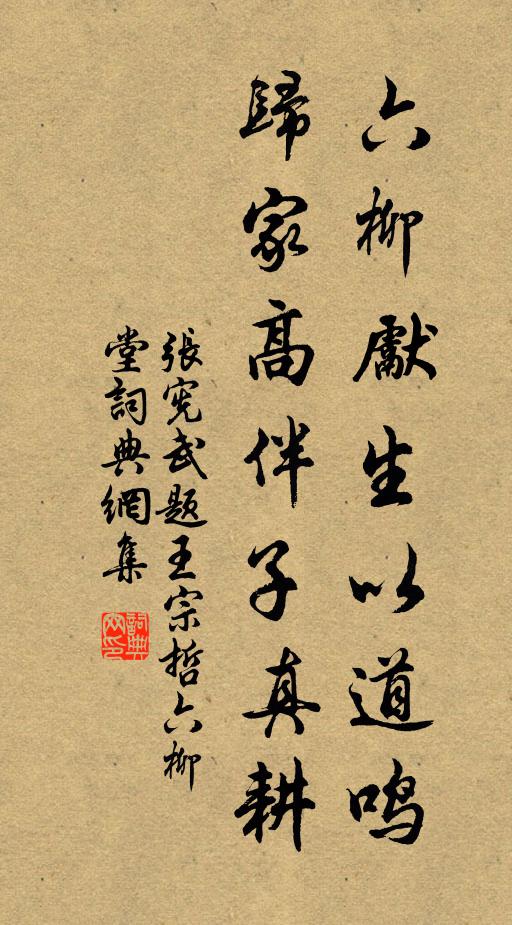 六柳獻生以道鳴
歸家高伴子真耕
張宪武题王宗哲六柳
堂詞典網集
詞典网印